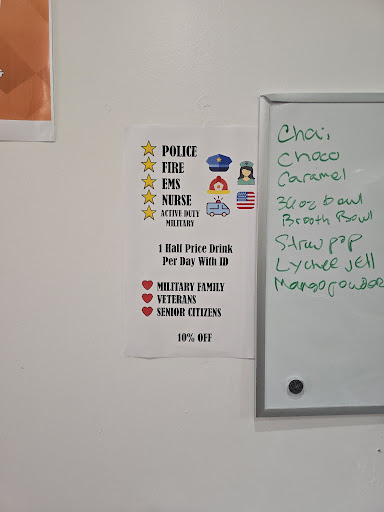 POLICE
FIRE
EMS
NURSE
ACTIVE DUTY
MILITARY
1 Half Price Drink
Per Day With ID
MILITARY FAMILY
VETERANS
SENIOR CITIZENS
10% OFF
Chai,
Choco
Caramel
bowl
Brooth Bowl
Straw pop
Lychee jell
Mango powder